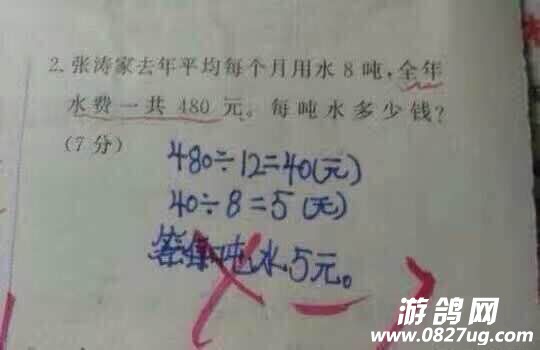 2. 张涛家去年平均每个月用水 8 吨,全年
水费一共 480 元。每吨水多少钱?
(7分)
480÷12=40(元)
40÷8=5(元)
答:每吨水5元。
游鸽网
www.0827ug.com